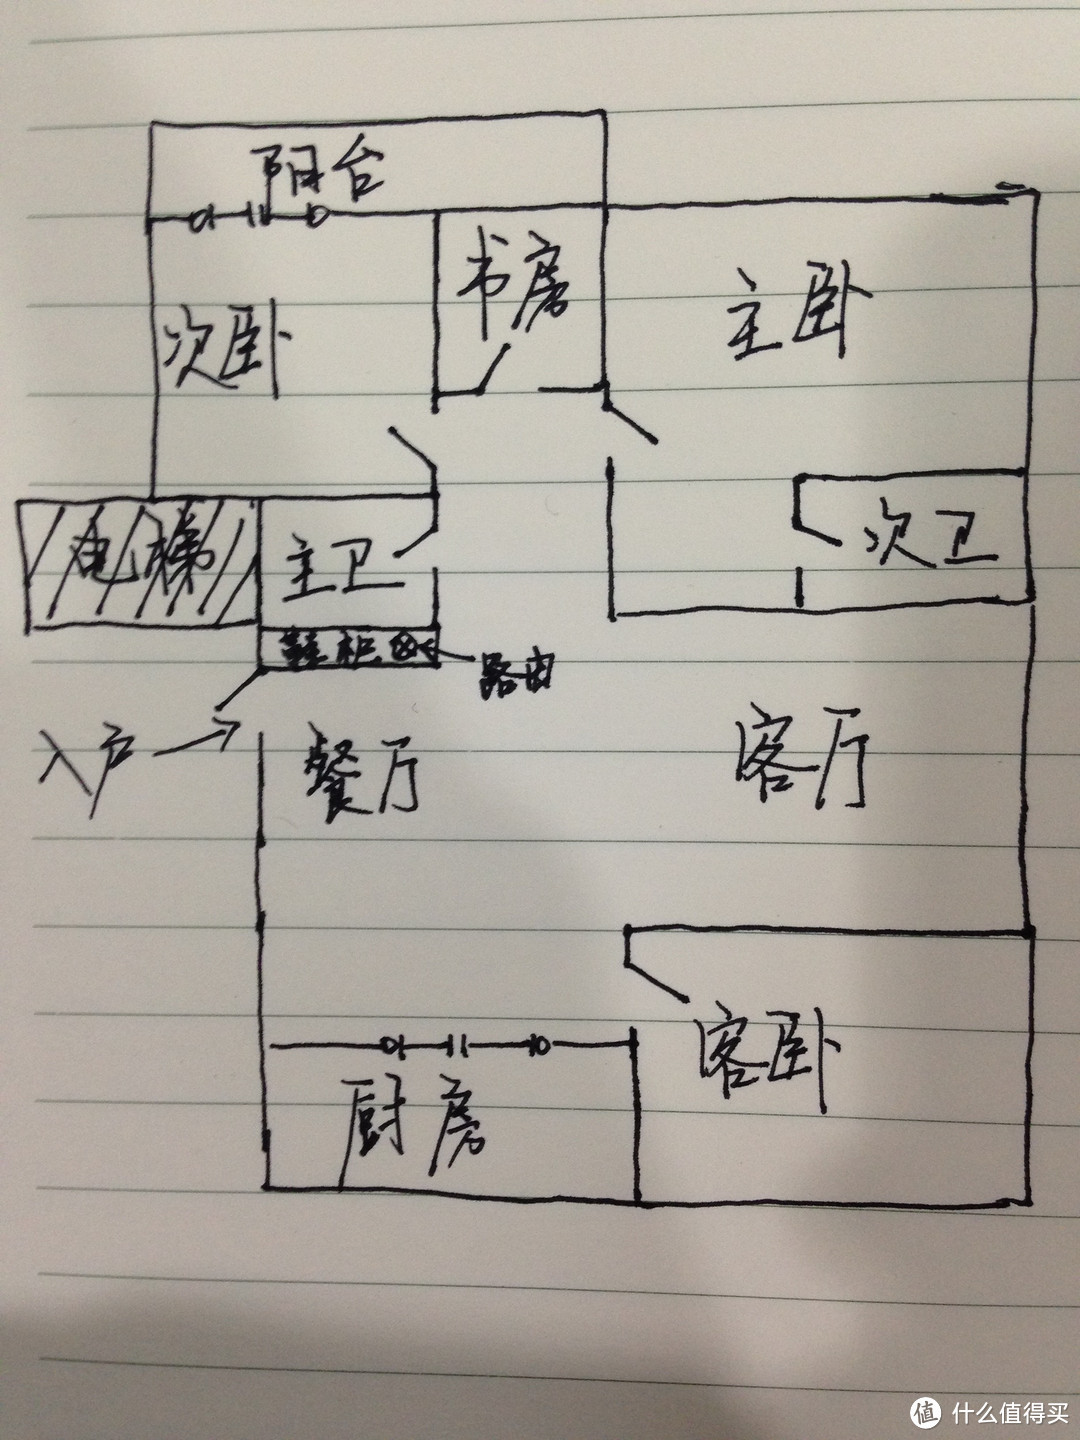 阳台
书房
主卧
次卧
电梯
主卫
次卫
鞋柜
路由
入户
餐厅
客厅
客卧
厨房
值 什么值得买